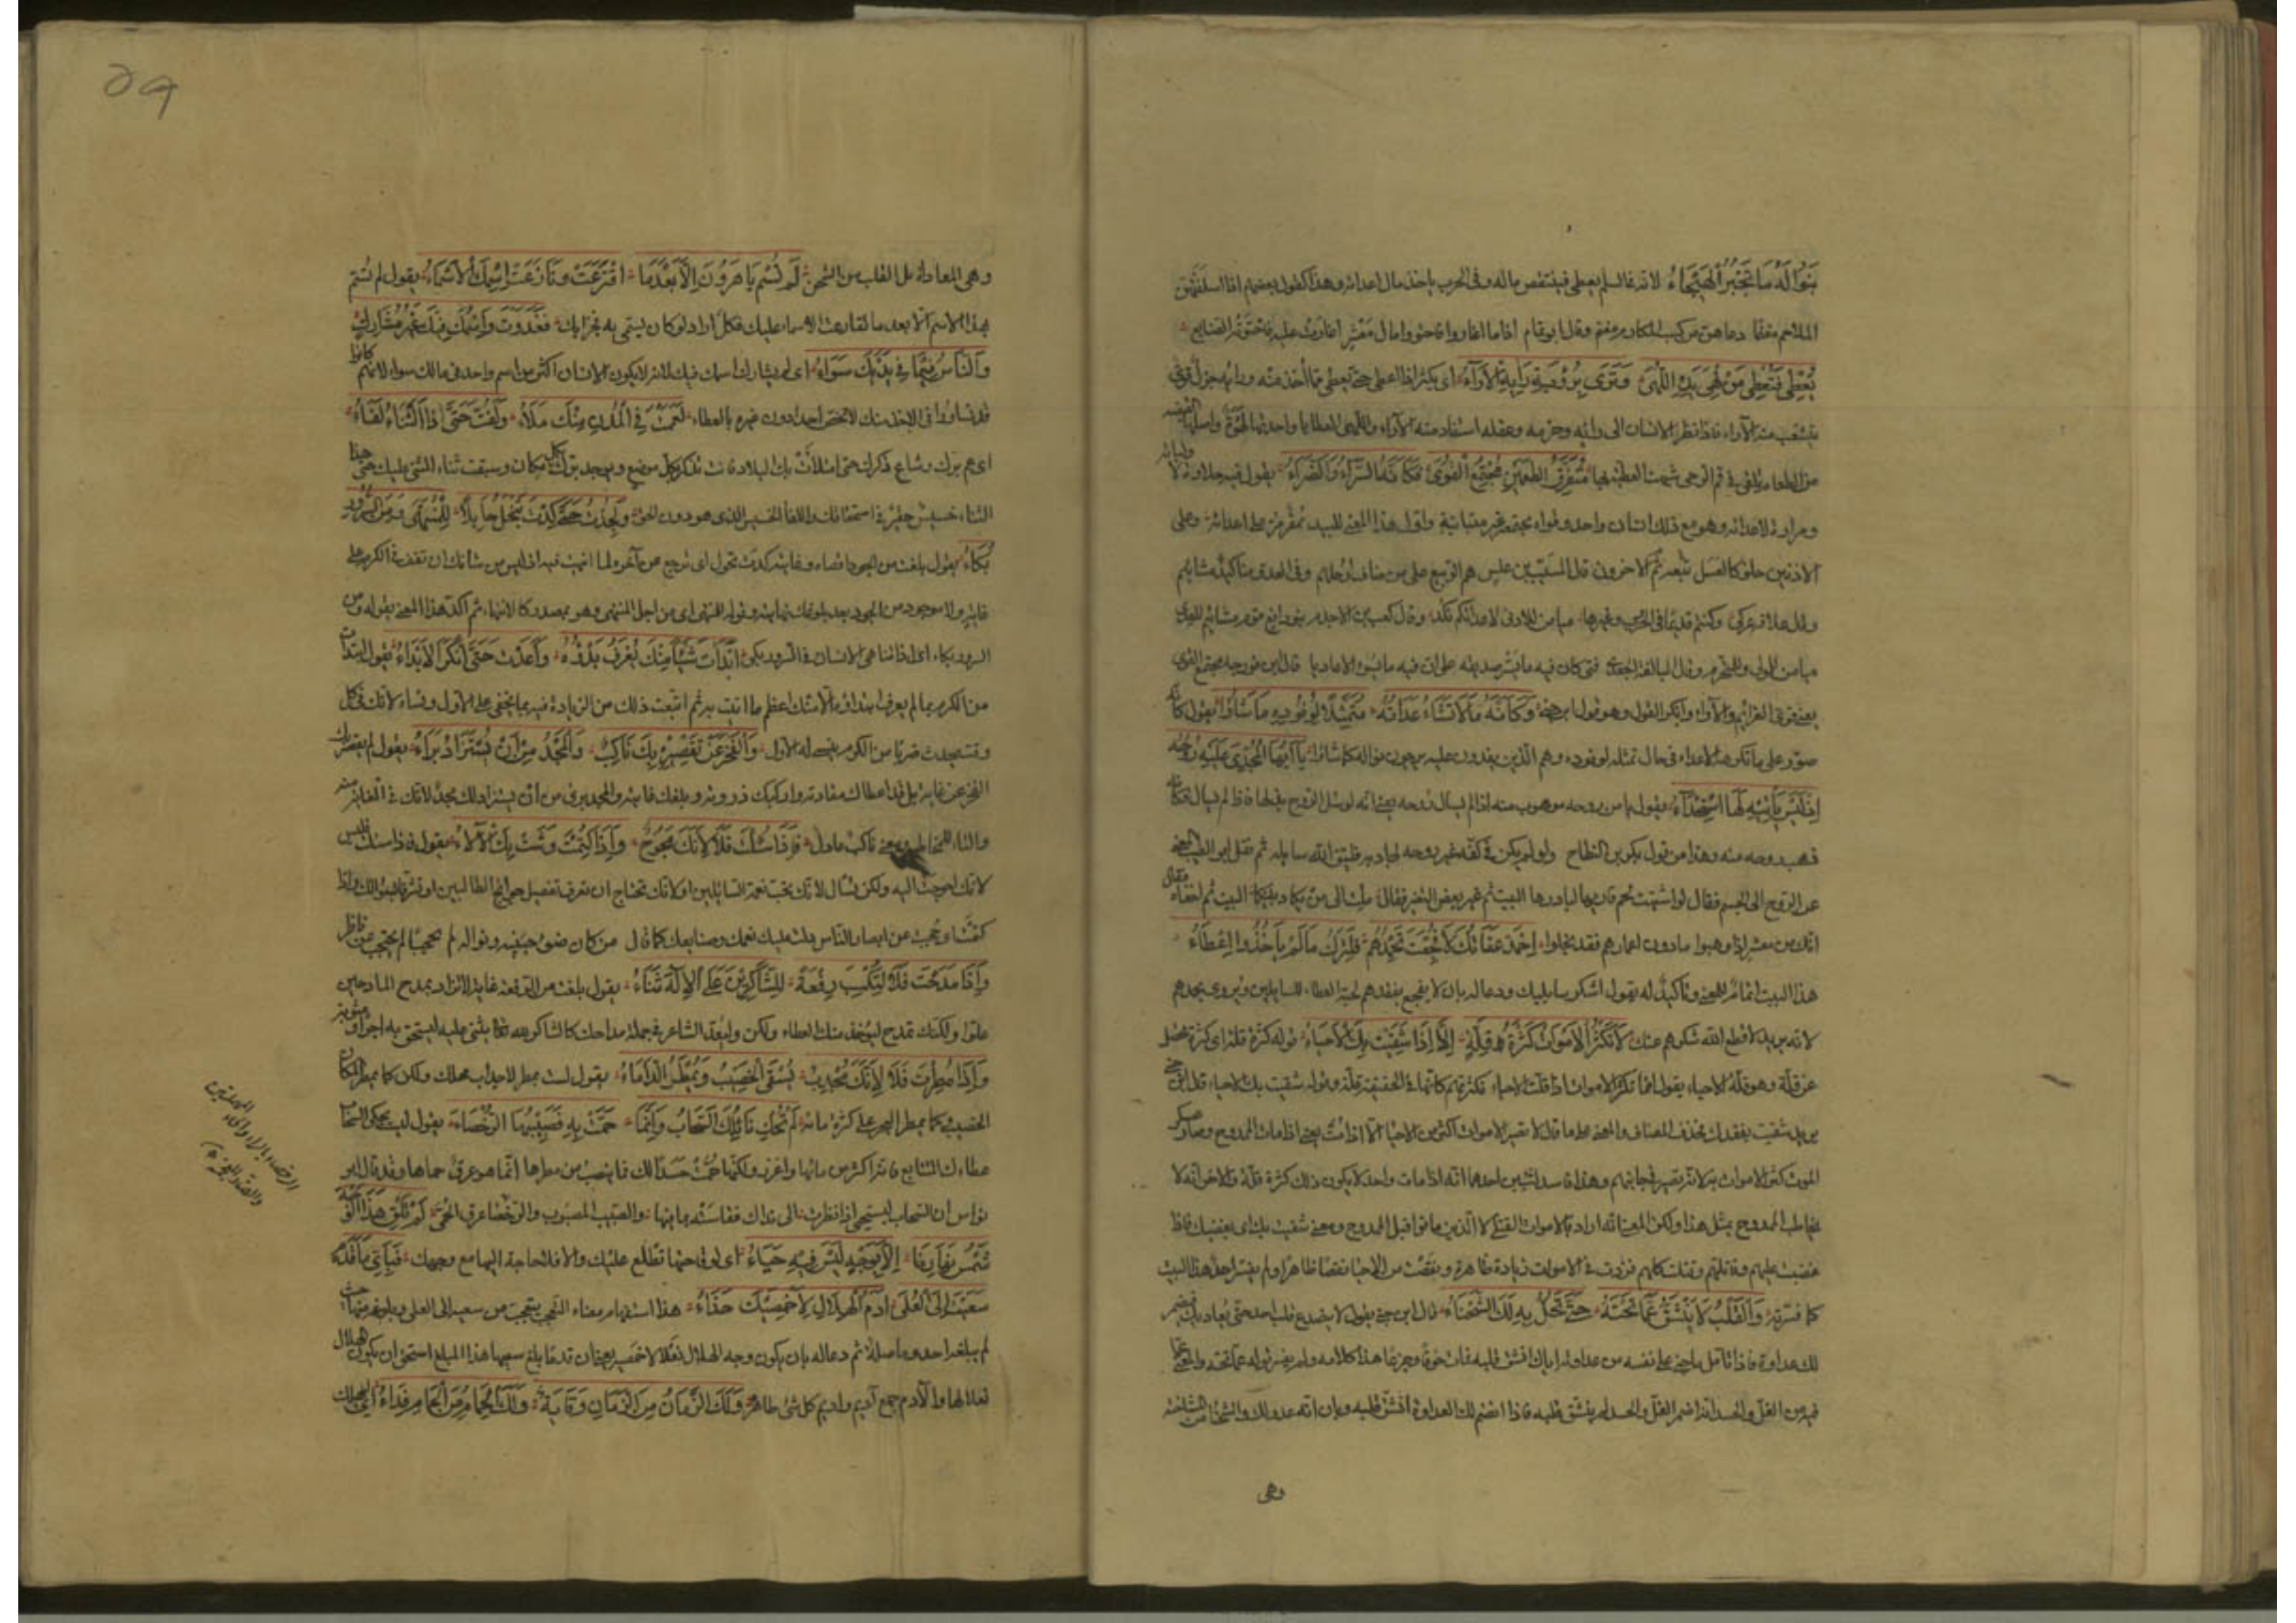 بنواله ما تجبر الهيجاء لانه في السلم يعطي فينتقص ماله وفي الحرب ياخذ مال اعدائه وهذا كقول بعضهم اذا اسلفتهن
الملاحم مغنما دعاهن من كسب المكارم مغرم وقال ابو تمام اذا ما اغاروا فاحتووا مال معشر اغارت عليه فاحتوته الصنايع
يعطي فتعطى من لهى يده اللهى وترى برؤية رأيه الآراء اي يكثر اذا اعطى حتى يعطى مما اخذ منه
يتشعب منه الآراء فاذا نظر الانسان الى رأيه وحزمه وعقله استفاد منه الآراء واللهى العطايا واحدتها لهوة واصلها القبضة
من الطعام يلقى في فم الرحى شبهت العطية بها متفرق الطعمين مجتمع القوى فكأنه السراء والضراء يقول فيه حلاوة لاوليائه
ومرارة لاعدائه وهو مع ذلك انسان واحد وقواه مجتمعة غير متباينة واول هذا المعنى للبيد ممقر مر على اعدائه وعلى
الادنين حلو كالعسل تبعه ثم الاخرون قال المسيب بن علس هم الربيع على من ضاف ارحلهم وفي العدو مناكيد مشائيم
وقال علاقة بن عركي وكنتم قديما في الحرب وغيرها ميامين للادنى لاعدائكم نكد وقال كعب بن الاجذم بنو رافع قوم مشائيم للعدى
ميامين للمولى وللمتحرم وقال النابغة الجعدي فتى كان فيه ما يسر صديقه على ان فيه ما يسوء الاعاديا قال ابن فورجه مجتمع القوى
يعني قوى العزائم والآراء وانكر القول وهو قول ابن جني وكأنه ما لا تشاء عداته متمثلا لوفوده ما شاؤا يقول كأنه
صور على ما تكرهه الاعداء في حال تمثله لوفوده وهم الذين يفدون عليه يرجون نواله كما شاؤا يا ايها المجدى عليه روحه
اذ ليس يأتيه لها استجداء يقول يا من روحه موهوب منه اذا لم يسأل روحه يعني انه لو سئل الروح بذلها فاذا لم يسأل فكأنه
وهب روحه منه وهذا من قول بكر بن النطاح ولو لم يكن في كفه غير روحه لجاد بها فليتق الله سائله ثم نقل ابو الطيب المعنى
عن الروح الى الجسم فقال لو اشتهت لحم قاريها لبادرها البيت ثم غير بعض التغيير فقال ملت الى من يكاد بينكما البيت ثم اخفاه فقال
انك من معشر اذا وهبوا ما دون اعمارهم فقد بخلوا احمد عفاتك لا فجعت بحمدهم فلترك ما لم يأخذوا اعطاء
هذا البيت اتمام للمعنى وتأكيد له يقول اشكر سائليك ودعا له بان لا يفجع بفقدهم لحبه العطاء للسائلين ويروى بحمدهم
لانه يريد لا قطع الله شكرهم عنك لا تكثر الاموات كثرة قلة الا اذا شقيت بك الاحياء قوله كثرة قلة اي كثرة تحصل
عن قلة وهو قلة الاحياء يقول انما تكثر الاموات اذا قلت الاحياء فكثرتهم كانها في الحقيقة قلة وقوله شقيت بك الاحياء قال ابن جني
يريد شقيت بفقدك فحذف المضاف والمعنى على ما قال لا تصير الاموات اكثر من الاحياء الا اذا مت يعني اذا مات الممدوح وصار في عسكر
الموت كثر الاموات به لانه يصير في جانبهم وهذا فاسد لشيئين احدهما انه اذا مات واحد لا يكون ذلك كثرة قلة والاخر انه لا
يخاطب الممدوح بمثل هذا ولكن المعنى انه اراد بالاموات القتلى لا الذين ماتوا قبل الممدوح ومعنى شقيت بك اي بغضبك فاذا
غضبت عليهم وقاتلتهم وقتلت كلهم فزدت في الاموات زيادة ظاهرة ونقصت من الاحياء نقصا ظاهرا ولم يفسر احد هذا البيت
كما فسرته والقلب لا ينشق عما تحته حتى تحل به لك الشحناء قال ابن جني يقول لا يصدع قلب احد حتى يعاديك فيضمر
لك عداوة فاذا تأمل ما جنى على نفسه من عداوته اياك انشق قلبه فمات خوفا وجزعا هذا كلامه ولم يفسر قوله عما تحته والمعنى عما
فيه من الغل والحسد اذا اضمر الغل والحسد لم ينشق قلبه فاذا اضمر لك العداوة انشق قلبه وبان انه عدو لك والشحناء من المشاحنة
وهي
٥٩
وهي المعاداة على القلب من الشحن لم تسم يا هرون الا بعدما اقترعت ونازعت اسمك الاسماء يقول لم تسم
بهذا الاسم الا بعد ما تقارعت الاسماء عليك فكل اراد لو كان يسمى به فخرا بك فغدوت واسمك فيك غير مشارك
والناس فيما في يديك سواء اي لم يشارك اسمك فيك لانه لا يكون لانسان اكثر من اسم واحد في مالك سواء لانهم كانوا
قد تساووا في الاخذ منك لا تختص احدا دون غيره بالعطاء لعممت حتى المدن منك ملاء ولفت حتى ذا الثناء لفاء
اي عم برك وشاع ذكرك حتى امتلأت بك البلاد فانت تذكر بكل موضع ويوجد برك بكل مكان وسبقت ثناء المثني عليك حتى هذا
الثناء خسيس حقير في استحقاقك واللفاء الخسيس الذي هو دون الحق ولجدت حتى كدت تبخل حائلا للمنتهى ومن السرور
بكاء يقول بلغت من الجود اقصاه وغايته كدت تحول اي ترجع عن آخره لما انتهيت فيه اذ ليس من شأنك ان تقف في الكرم على
غاية ولا موجود من الجود بعد بلوغك نهايته وقوله للمنتهى اي من اجل المنتهى وهو مصدر كالانتهاء ثم اكد هذا المعنى بقوله ومن
السرور بكاء ابدأت شيئا منك يعرف بدؤه واعدت حتى انكر الابداء يقول ابتدأت
من الكرم بما لم يعرف ابتداؤه الا منك لعظم ما اتيت به ثم اتبعت ذلك من الزيادة فيه بما يخفى على الاول وينساه لانك في كل
وقت تحدث ضربا من الكرم ينسى له الاول والفخر عن تقصيره بك ناكب والمجد من ان تستزاد براء يقول لم يقصر بك
الفخر عن غايته بل قد اعطاك مقادته واركبك ذروته وبلغك غايته والمجد بريء من ان يستزاد لك مجد لانك في الغاية منه
والتاء للمخاطبة ومعنى ناكب عادل فاذا سئلت فلا لانك محوج واذا كتمت وشت بك الآلاء يقول فاذا سئلت فليس
لانك احوجت اليه ولكن تسأل لانك تحب نغمة السائلين او لانك تحتاج ان تعرف تفصيل حوائج الطالبين او تشرفا بسؤالك واذا
كتمت وحجبت عن ابصار الناس دلت عليك نعمك وصنائعك كما قال من كان ضوء جبينه ونواله لم يحجبا لم يحتجب عن ناظر
واذا مدحت فلا لتكسب رفعة للشاكرين على الاله ثناء يقول بلغت من الرفعة غاية لا تزاد بمدح المادحين
علوا ولكنك تمدح ليؤخذ منك العطاء ولكن وليعد الشاعر في جملة مداحك كالشاكر لله تعالى يثني عليه ليستحق به اجرا ومثوبة
واذا مطرت فلا لانك مجدب يسقى الخصيب وتمطر الدأماء يقول لست تمطر لاجداب محلك ولكن كما يمطر المكان
الخصيب وكما يمطر البحر على كثرة مائه لم تحك نائلك السحاب وانما حمت به فصبيبها الرحضاء يقول ليست تحكي السحاب
عطاءك المتتابع فانه اكثر من مائها واغزر ولكنها حمت حسدا لك فما ينصب من مطرها انما هو عرق حماها وقد قال ابو
نواس ان السحاب لتستحي اذا نظرت الى نداك فقاسته بما فيها والصبيب المصبوب والرحضاء عرق الحمى لم تلق هذا الوجه
شمس نهارنا الا بوجه ليس فيه حياء اي لوقاحتها تطلع عليك والا فلا حاجة اليها مع وجهك فبأيما قدم
سعيت الى العلى ادم الهلال لاخمصيك حذاء هذا استفهام معناه التعجب يتعجب من سعيه الى العلى وبلوغه منها حيث
لم يبلغه احد وما صلة ثم دعا له بان يكون وجه الهلال نعلا لاخمصيه يعني ان قدما بلغ سعيها هذا المبلغ استحق ان يكون الهلال
نعلا لها والآدم جمع اديم واديم كل شيء ظاهره ولك الزمان من الزمان وقاية ولك الحمام من الحمام فداء
الرحضاء بالراء والحاء المهملتين
والضاد المعجمة